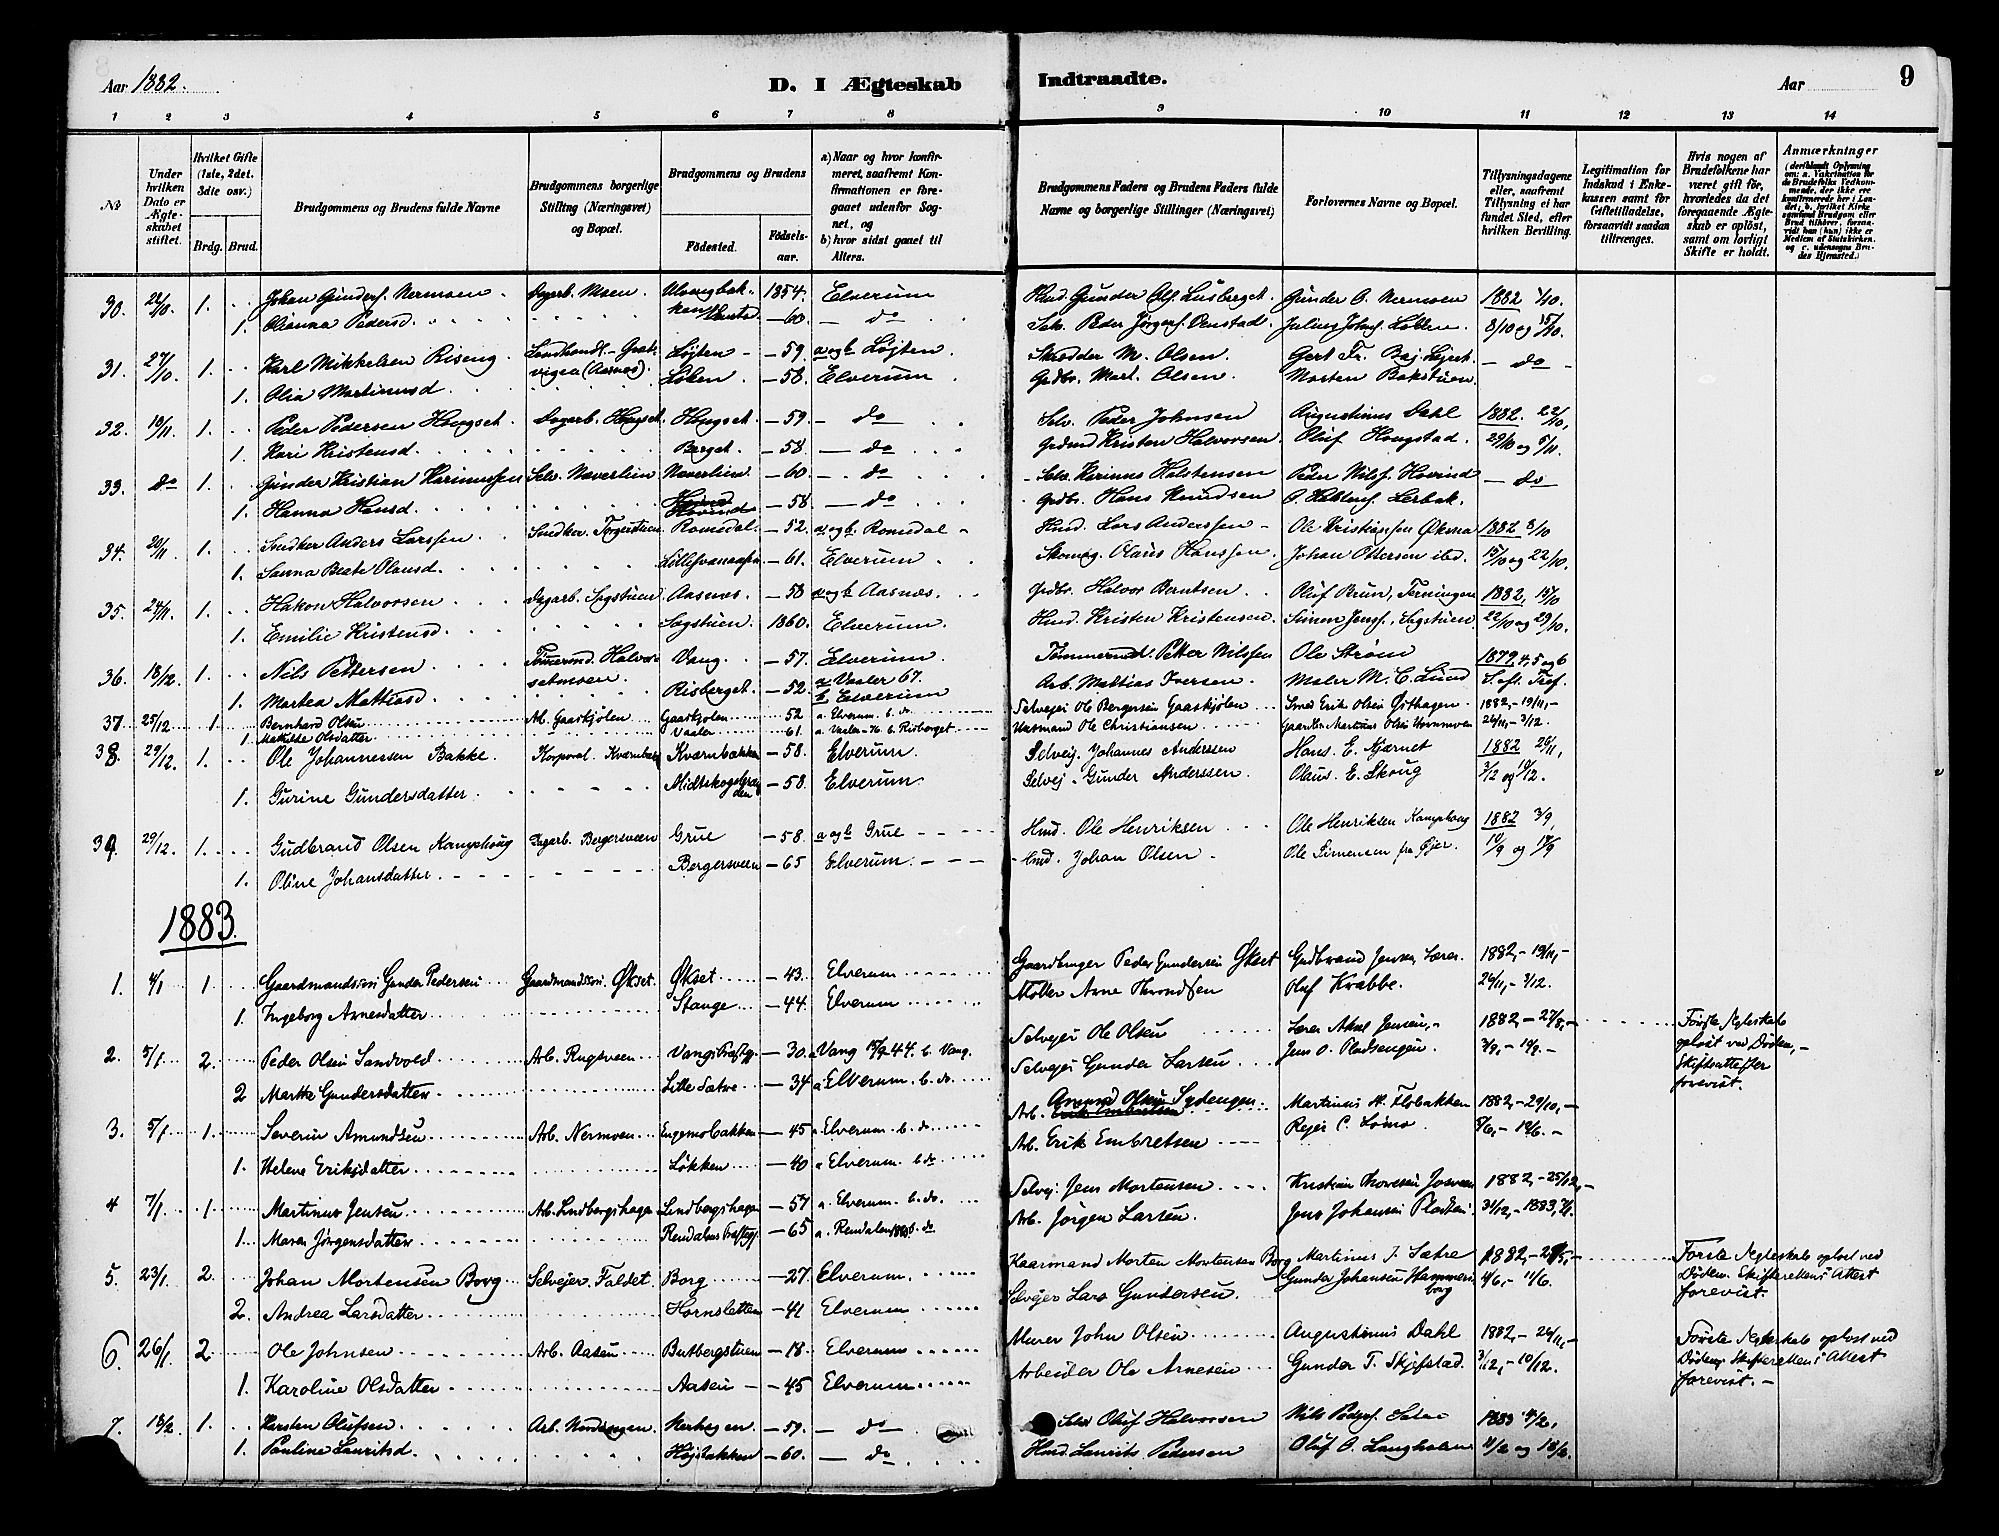 Aar 1882. D. I Ægteskab Indtraadte. Aar 9
1 2 3 4 5 6 7 8 9 10 11 12 13 14
No
Under hvilken Dato er Ægteskabet stiftet.
Hvilket Gifte (1ste, 2det, 3die osv.)
Brdg. Brud.
Brudgommens og Brudens fulde Navne
Brudgommens borgerlige Stilling (Næringsvei) og Bopæl.
Brudgommens og Brudens
Fødested. Fødselsaar.
a) Naar og hvor konfirmeret, saafremt Konfirmationen er foregaaet udenfor Sognet, og
b) hvor sidst gaaet til Alters.
Brudgommens Faders og Brudens Faders fulde Navne og borgerlige Stillinger (Næringsvei)
Forlovernes Navne og Bopæl.
Tillysningsdagene eller, saafremt Tillysning ei har fundet Sted, efter hvilken Bevilling.
Legitimation for Indskud i Enkekassen samt for Giftetilladelse, forsaavidt saadan tiltrænges.
Hvis nogen af Brudefolkene har været gift før, hvorledes da det foregaaende Ægteskab er opløst, samt om lovligt Skifte er holdt.
Anmærkninger
30. 22/10 1. Johan Gunders. Nermoen Dagarb. Moen 1854. Elverum Hmd. Gunder Ols. Gunder O. Nermoen 1882 1/10.
1. Olianna Pedersd. — 60 — do Selv. Peder Jørgens. 8/10 og 15/10.
31. 27/10 1. Karl Mikkelsen Riseng Landhandl. (Aasnes) Løjten — 59. a og b Løjten. Skrædder M. Olsen. — do —
1. Olia Martinusd. Løken — 58. Elverum Grdbr. Mart. Olsen. Morten Bakstuen
32. 10/11 1. Peder Pedersen Hougset Dagarb. Hougset Hougset — 59 — do Selv. Peder Johnsen Augustinus Dahl 1882. 22/10,
1. Kari Kristensd. Berget. — 58. — do Kristen Halvorsen Oluf Hougstad. 29/10 og 5/11.
33. do 1. Gunder Kristian Karinussen Selv. Naverlien Naverlien — 60 — do Selv. Karinus Halstensen Peder Nilss. Hovind — do
1. Hanna Hansd. Hovind — 58 — do Grdbr. Hans Knudsen
34. 20/11 1. Snedker Anders Larssen Snedker Romedal. — 52. a og b Romedal Hmd. Lars Anderssen Ole Kristiansen Øksna 1882 8/10
1. Sanna Beate Olausd. — 61. Elverum Skomag. Olaus Hanssen Johan Ottersen 15/10 og 22/10.
35. 24/11 1. Hakon Halvorsen Dagarb. Sagstuen Aasnes. — 58 a og b Aasnes. Grdbr. Halvor Berntsen Oluf Brun, Terningen 1882, 15/10
1. Emilie Kristensd. Sagstuen 1860. Elverum Hmd. Kristen Kristensen. Simen Jenss. Sagstuen. 22/10 og 29/10.
36. 18/12 1. Nils Pettersen Vang. — 57. Elverum Petter Nilssen Ole Strøm 1879 4, 5 og 6
1. Marten Mattiasd Risberget. — 52. a Vaaler 67. b. Elverum Arb. Mattias Iversen. Maler M. C. Lund S. eft. Tref.
37 25/12 1. Bernhard Olsen Arb. Gaaskjølen Gaaskjølen 52 a. Elverum b. do. Selvejer Ole Bergersen Gaaskjølen Smed Erik Olsen Østhagen 1882,- 19/11,-
1 Mathilde Olsdatter Vaaler 61. a. Vaaler b. Risberget Husmand Ole Christiansen 26/11,- 3/12.
38 29/12 1. Ole Johannessen Bakke Korporal. Kværnbakken — 58. Elverum. Selvej. Johannes Anderssen Hans. E. Kjernet 1882 26/11,
1. Gurine Gundersdatter — 58 Elverum Selvej. Gunder Anderssen. Olaus. E. Skoug 3/12 og 10/12.
39. 29/12 1. Gudbrand Olsen Kamphoug Dagarb. Bergersveen Grue — 58 a og b Grue Hmd. Ole Henriksen Ole Henriksen Kamphoug 1882 3/9,
1. Oline Johansdatter Bergersveen — 65 Elverum. Hmd. Johan Olsen Ole Simensen fra Øjer. 10/9 og 17/9
1883.
1. 4/1 1 Gaardmandssøn Gunder Pedersen Gaardmandssøn. Økset. Økset — 43. Elverum Gaardbruger Peder Gundersen Økset Gudbrand Jensen Lærer. 1882,- 19/11,-
1. Ingeborg Arnesdatter Stange — 44. Elverum Møller Arne Throndsen Oluf Krabbe. 26/11,- 3/12.
2. 5/1 2. Peder Olsen Sandvold Arb. Rugsveen Vangs Præstgj. — 30. a Vang 15/9 44. b. Vang. Selvejer Ole Olsen Lærer Aksel Jensen,- 1882,- 27/8,- Første Ægteskab opløst ved Døden,- Skifteattester forevist.
2 Marthe Gundersdatter Lille Sætre — 34 a Elverum. b. do. Selvejer Gunder Larsen Jens O. Pladsengen. 3/9,- 10/9.-
3. 5/1 1. Severin Amundsen Arb. Nermoen Engemobakken — 45 a Elverum b. do. Arb. Amund Olsen Sydengen. Martinius H. Flobakken 1882,- 29/10,-
1. Helene Eriksdatter Løkken — 40 a Elverum. b do Arb. Erik Embretsen Rejer C. Lømo
4 7/1 1. Martinus Jensen Arb. Lindbergshagen Lindbergshagen — 57 a. Elverum. b. do. Selvej. Jens Mortensen Kristian Thoresen 1882,- 25/12,-
1 Maren Jørgensdatter Rendalens Præstegj. — 65 a. Rendalen b. do Arb. Jørgen Larsen. Jens Johansen Pladsen 31/12,- 1883,
5. 23/1 2. Johan Mortensen Borg Selvejer. Faldet Borg — 27 Elverum. Kaarmand Morten Mortensen Borg Martinus J. Sætre 1882,- 28/5,- Første Ægteskab opløst ved Døden. Skifterettens Attest forevist.
2. Andrea Larsdatter Hornsletten — 41 Elverum Selvejer Lars Gundersen Gunder Johansen Hammersborg 4/6,- 11/6.
6. 26/1 2 Ole Johnsen Arb. Aasen Butbergstuen — 18 Elverum Murer John Olsen Augustinus Dahl 1882,- 26/11,- Første Ægteskab opløst ved Døden, Skifterettens Attest forevist.-
1. Karoline Olsdatter Aasen — 45 Elverum Arbeider Ole Arnesen Gunder T. Skjefstad. 3/12,- 10/12.
7. 18/2 1. Karsten Olufsen Arb. — 59. — do Selv. Oluf Halvorsen Nils Peders. Sætre 1883 4/2,
1. Pauline Lauritsd Højebakken — 60. — do Hmd. Laurits Pedersen Oluf O. Langholen 11/2 og 18/2.